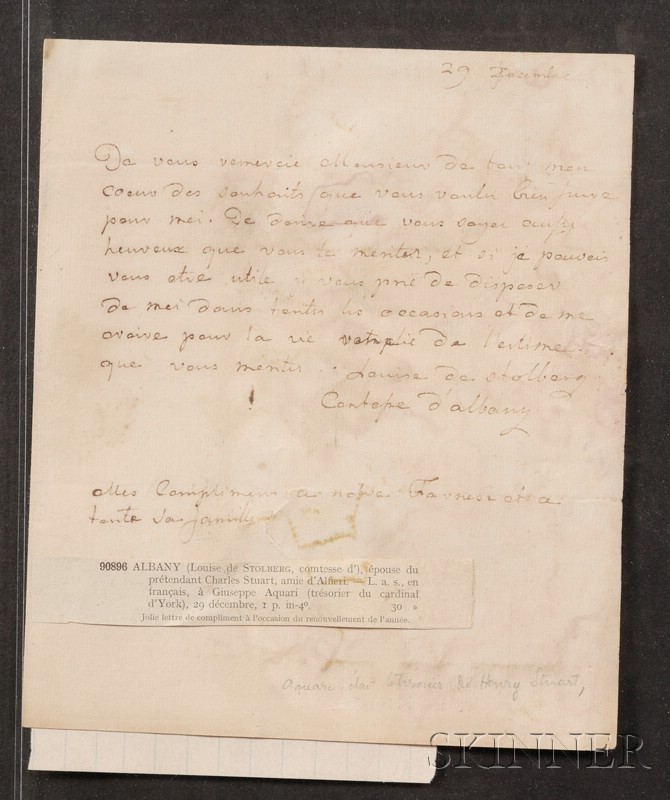 29 Decembre
Je vous remercie Monsieur de tout mon
coeur des souhaits que vous voulu bien faire
pour moi. Je desire que vous soyez aussy
heureux que vous le meritez, et si je pouvois
vous etre utile je vous prie de disposer
de moi dans toutes les occasions et de me
croire pour la vie remplie de l'estime
que vous meritez. Louise de Stolberg
Contesse d'albany
Mes Complimens a notre Farnese et a
toute sa famille
90896 ALBANY (Louise de STOLBERG, comtesse d'), épouse du
prétendant Charles Stuart, amie d'Alfieri. — L. a. s., en
français, à Giuseppe Aquari (trésorier du cardinal
d'York), 29 décembre, 1 p. in-4°. 30 »
Jolie lettre de compliment à l'occasion du renouvellement de l'année.
Aquari était trésorier de Henry Stuart,
SKINNER